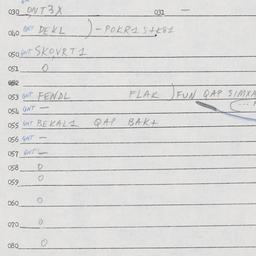 030 ONT3X 031 —
040 GNT DEKL ) - POKR1 S+K81
050 GNT SKOVRT1
051 0
052
053 GNT FENDL FLAK ) FUN QAP SIMXA
054 GNT —
055 GNT BEKAL1 QAP BAK+
056 GNT —
057 GNT —
058 0
059 0
060 0
070 0
080 0